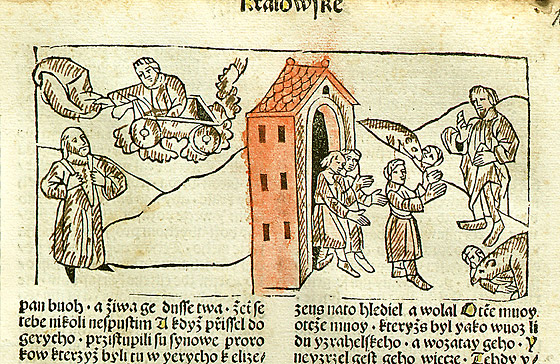 Kralowſke
pan buoh · a žiwa ge duſſe twa · žeť ſe
tebe nikoli neſpuſtim A když přiſſel do
gerycho · przistupili ſu ſynowe proro
kow kterzyž byli tu w yerycho k elize/
zeus nato hlediel a wolal Otče muoy
otcže muoy · kteryžs byl yako wuoz li
du yzrahelſkeho · a wozatay geho · Y
neyzrzel geſt geho wiecze · Tehdy